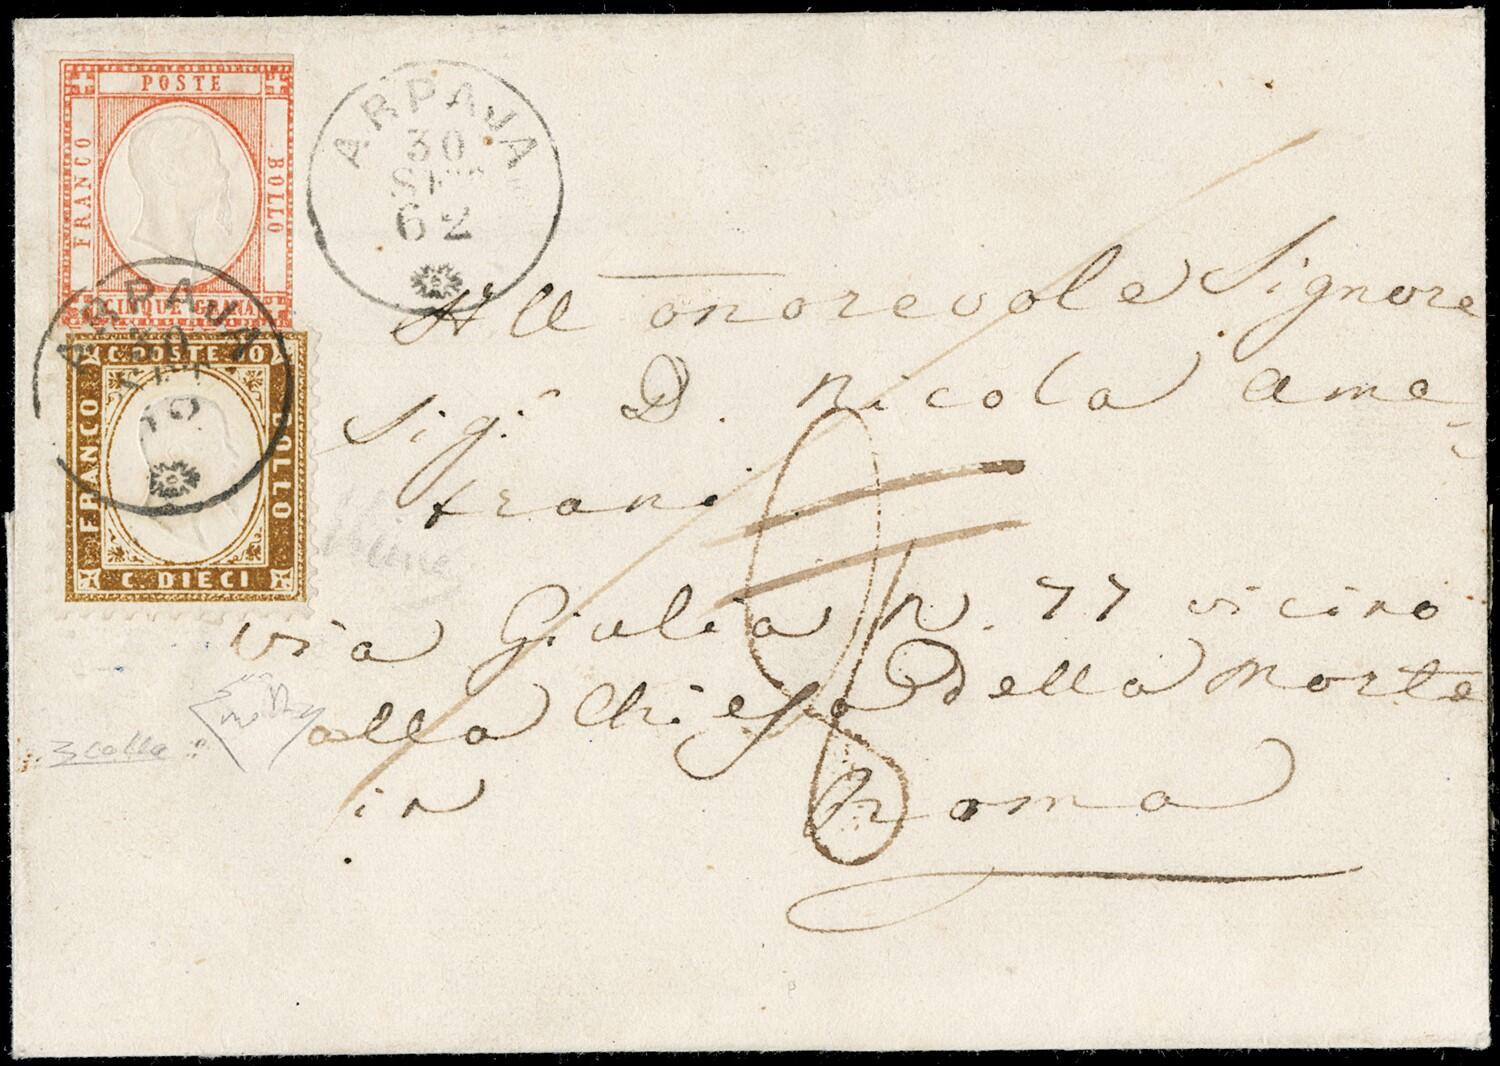 POSTE
FRANCO
BOLLO
CINQUE GRANA
ARPAJA
30
SET
62
C. POSTE 10
FRANCO
BOLLO
C. DIECI
ARPAJA
30
SET
All onorevole Signore
Sig.r D. Nicola Ama
trani
via Giulia N. 77 vicino
alla Chiesa della Morte
in Roma
8
3 colla